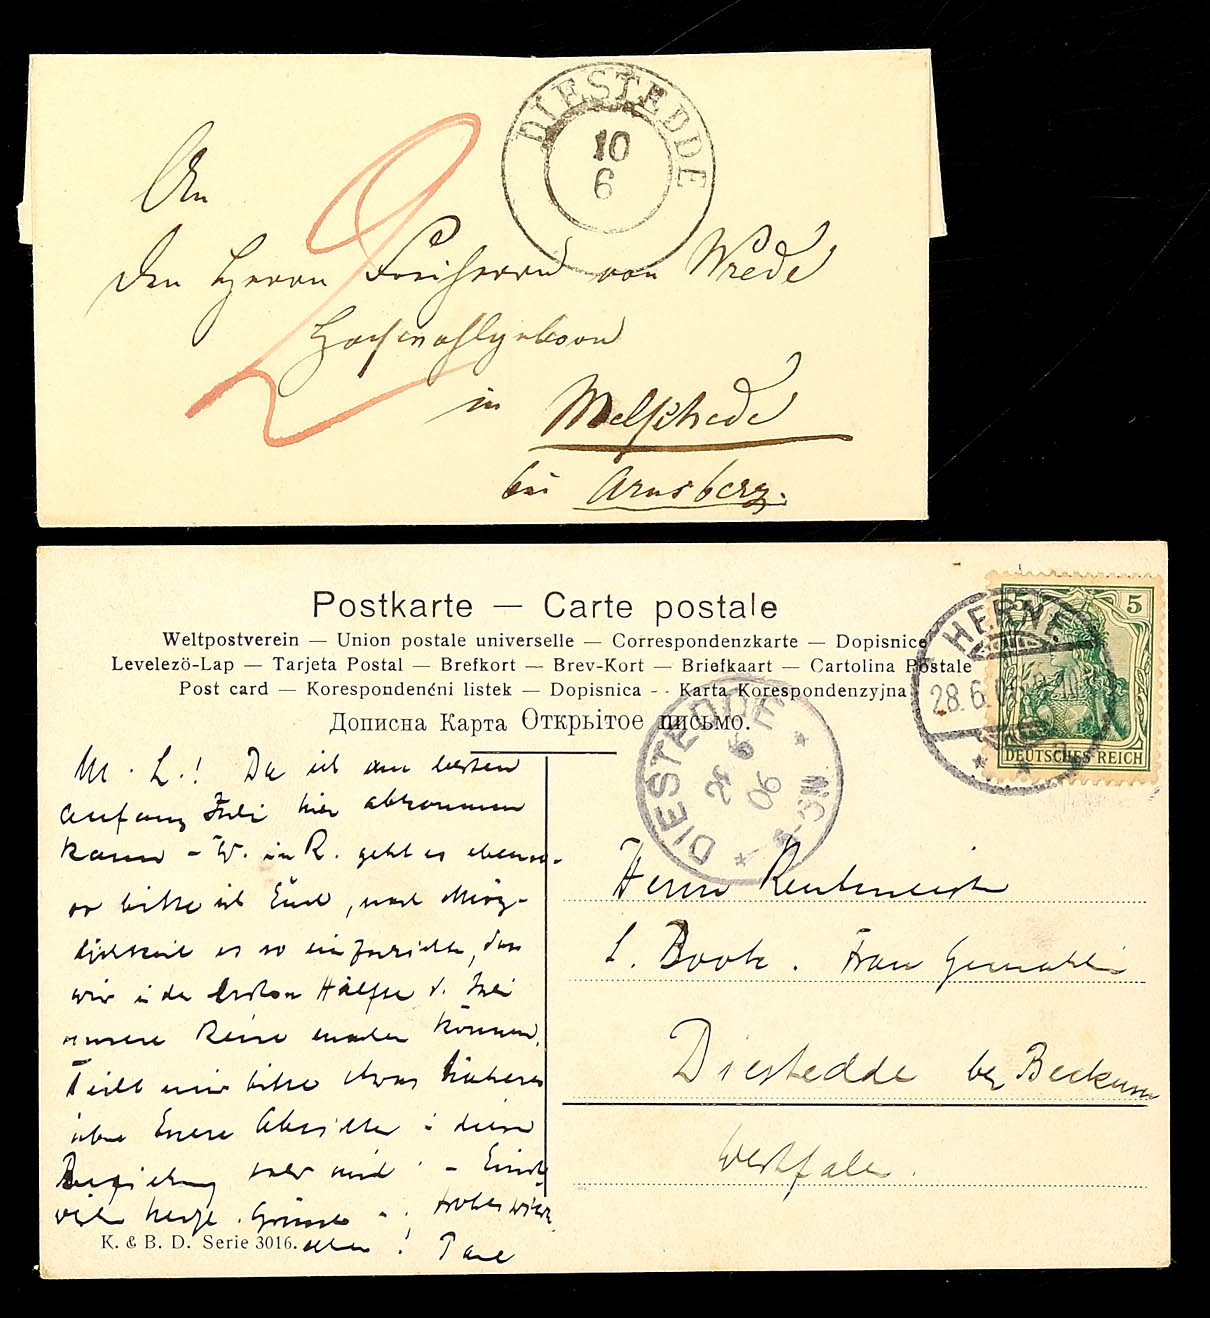 DIESTEDDE
10
6
An
den Herrn Freiherrn von Wrede
Hochwohlgeboren
2
in Melschede
bei Arnsberg.
Postkarte — Carte postale
Weltpostverein — Union postale universelle — Correspondenzkarte — Dopisnice
Levelezö-Lap — Tarjeta Postal — Brefkort — Brev-Kort — Briefkaart — Cartolina Postale
Post card — Korespondenční listek — Dopisnica -- Karta Korespondenzyjna
Дописна Карта Открытое письмо.
5 5
DEUTSCHES REICH
HERNE
28.6.
DIESTEDDE
6
06
M. L.! Da ich am besten
Anfang Juli hier abkommen
kann – W. in R. geht es ebenso –
so bitte ich Euch, nach Mög-
lichkeit es so einzurichten, dass
wir in der ersten Hälfte d. Juli
unsere Reise machen können.
Teilt mir bitte etwas Näheres
über Eure Absichten in dieser
Beziehung mit – Einst
viele herzl. Grüsse frohes Wieder
sehen!
Herrn Rentmeister
L. Book. Frau Gemahlin
Diestedde bei Beckum
Westfalen.
K. & B. D. Serie 3016.